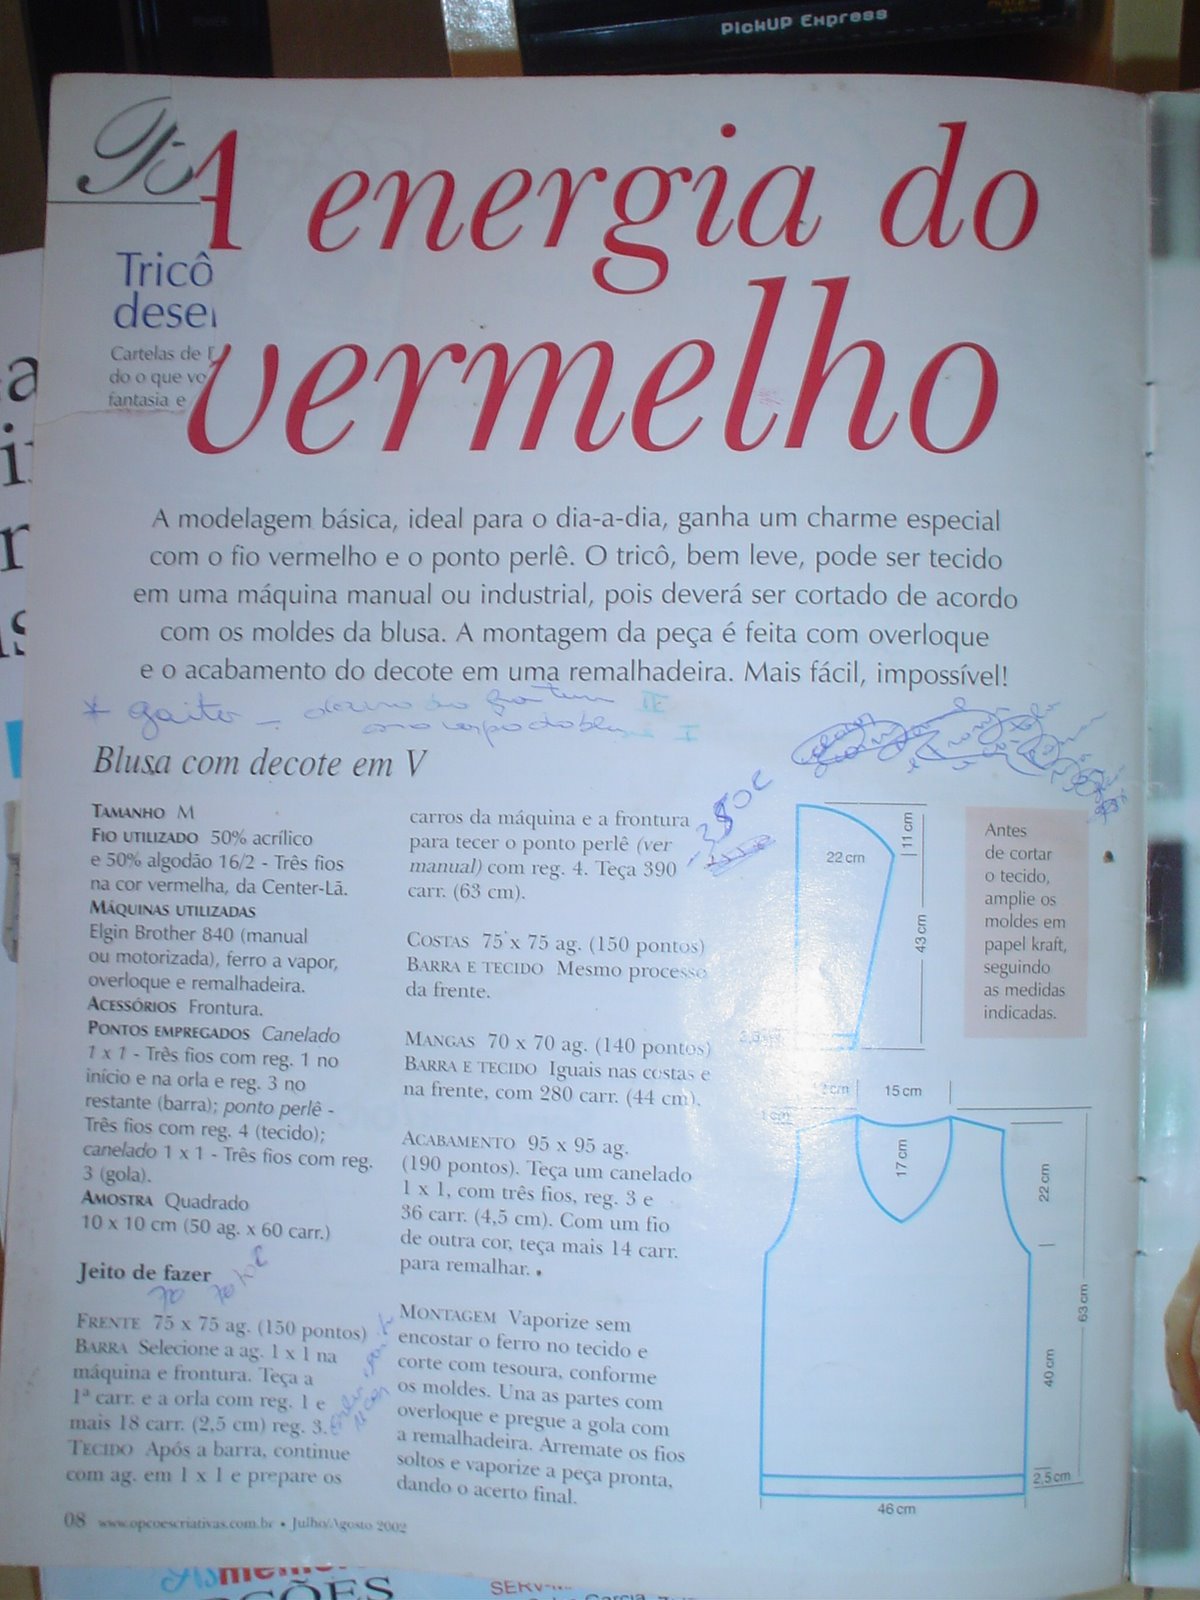 PickUP Express
A energia do
vermelho
Tricô
Cartelas de
do o que vo
fantasia e
A modelagem básica, ideal para o dia-a-dia, ganha um charme especial
com o fio vermelho e o ponto perlê. O tricô, bem leve, pode ser tecido
em uma máquina manual ou industrial, pois deverá ser cortado de acordo
com os moldes da blusa. A montagem da peça é feita com overloque
e o acabamento do decote em uma remalhadeira. Mais fácil, impossível!
Blusa com decote em V
TAMANHO M
FIO UTILIZADO 50% acrílico
e 50% algodão 16/2 - Três fios
na cor vermelha, da Center-Lã.
MÁQUINAS UTILIZADAS
Elgin Brother 840 (manual
ou motorizada), ferro a vapor,
overloque e remalhadeira.
ACESSÓRIOS Frontura.
PONTOS EMPREGADOS Canelado
1 x 1 - Três fios com reg. 1 no
início e na orla e reg. 3 no
restante (barra); ponto perlê -
Três fios com reg. 4 (tecido);
canelado 1 x 1 - Três fios com reg.
3 (gola).
AMOSTRA Quadrado
10 x 10 cm (50 ag. x 60 carr.)
Jeito de fazer
FRENTE 75 x 75 ag. (150 pontos)
BARRA Selecione a ag. 1 x 1 na
máquina e frontura. Teça a
1ª carr. e a orla com reg. 1 e
mais 18 carr. (2,5 cm) reg. 3.
TECIDO Após a barra, continue
com ag. em 1 x 1 e prepare os
carros da máquina e a frontura
para tecer o ponto perlê (ver
manual) com reg. 4. Teça 390
carr. (63 cm).
COSTAS 75 x 75 ag. (150 pontos)
BARRA E TECIDO Mesmo processo
da frente.
MANGAS 70 x 70 ag. (140 pontos)
BARRA E TECIDO Iguais nas costas e
na frente, com 280 carr. (44 cm).
ACABAMENTO 95 x 95 ag.
(190 pontos). Teça um canelado
1 x 1, com três fios, reg. 3 e
36 carr. (4,5 cm). Com um fio
de outra cor, teça mais 14 carr.
para remalhar.
MONTAGEM Vaporize sem
encostar o ferro no tecido e
corte com tesoura, conforme
os moldes. Una as partes com
overloque e pregue a gola com
a remalhadeira. Arremate os fios
soltos e vaporize a peça pronta,
dando o acerto final.
22 cm
11 cm
43 cm
Antes
de cortar
o tecido,
amplie os
moldes em
papel kraft,
seguindo
as medidas
indicadas.
15 cm
1 cm
17 cm
22 cm
63 cm
40 cm
2,5 cm
46 cm
08 www.opcoescriativas.com.br • Julho/Agosto 2002